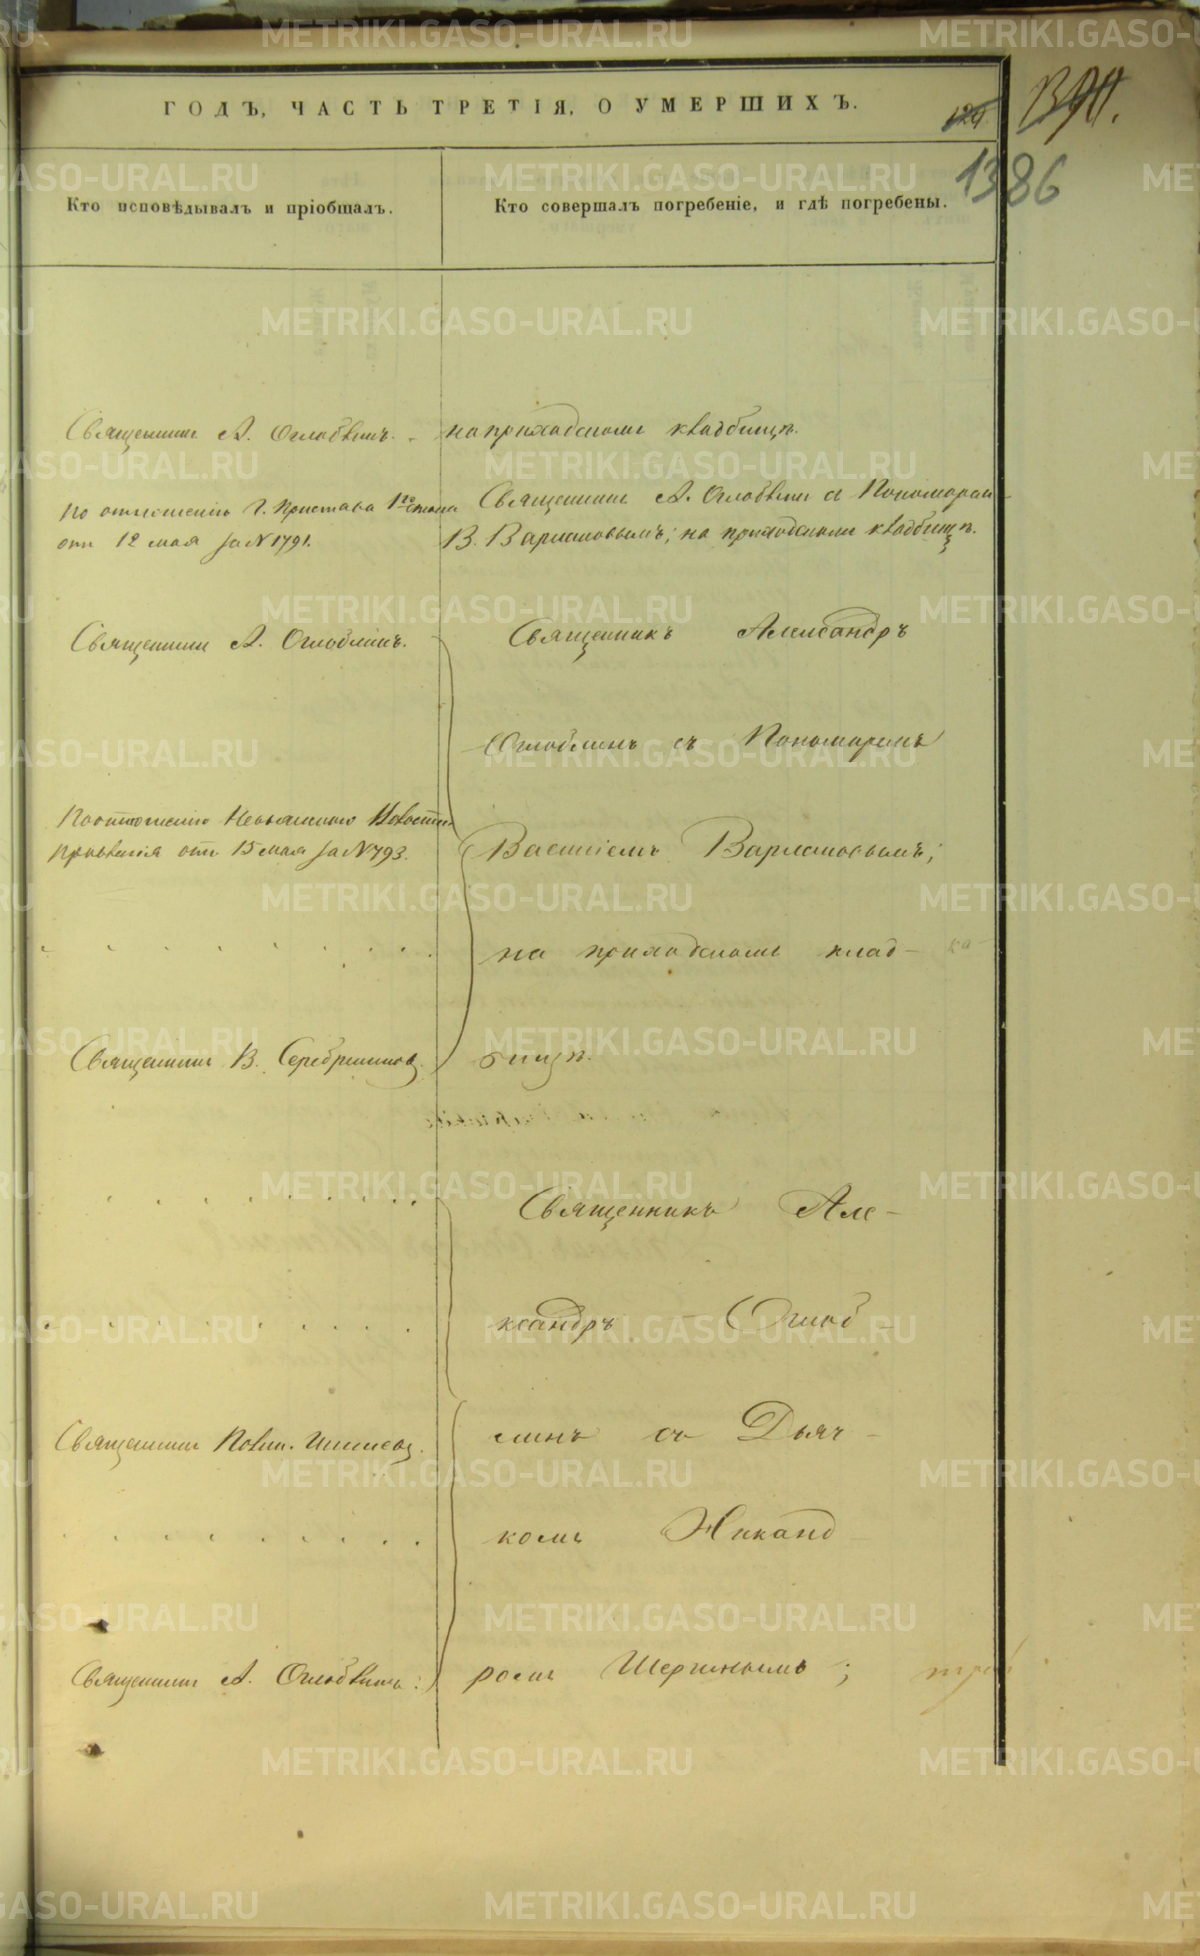 ГОДЪ, ЧАСТЬ ТРЕТІЯ, О УМЕРШИХЪ.
1386
Кто исповѣдывалъ и пріобщалъ.
Кто совершалъ погребеніе, и гдѣ погребены.
Священникъ А. Оглоблинъ.
на приходскомъ кладбищѣ.
По отношенію Г. Пристава 1го стана
отъ 12 мая за N 1791.
Священникъ А. Оглоблинъ съ Пономаремъ
В. Варлаковымъ; на приходскомъ кладбищѣ.
Священникъ А. Оглоблинъ.
Священникъ Александръ
Оглоблинъ съ Пономаремъ
По отношенію Невьянскаго
Правленія отъ 15 мая за N 793.
Василіемъ Варлаковымъ;
на приходскомъ клад-
Священникъ В. Серебренниковъ.
бищѣ.
Священникъ Але-
ксандръ Оглоб-
Священникъ
линъ съ Дьяч-
комъ Никанд-
Священникъ А. Оглоблинъ.
ромъ ;
METRIKI.GASO-URAL.RU